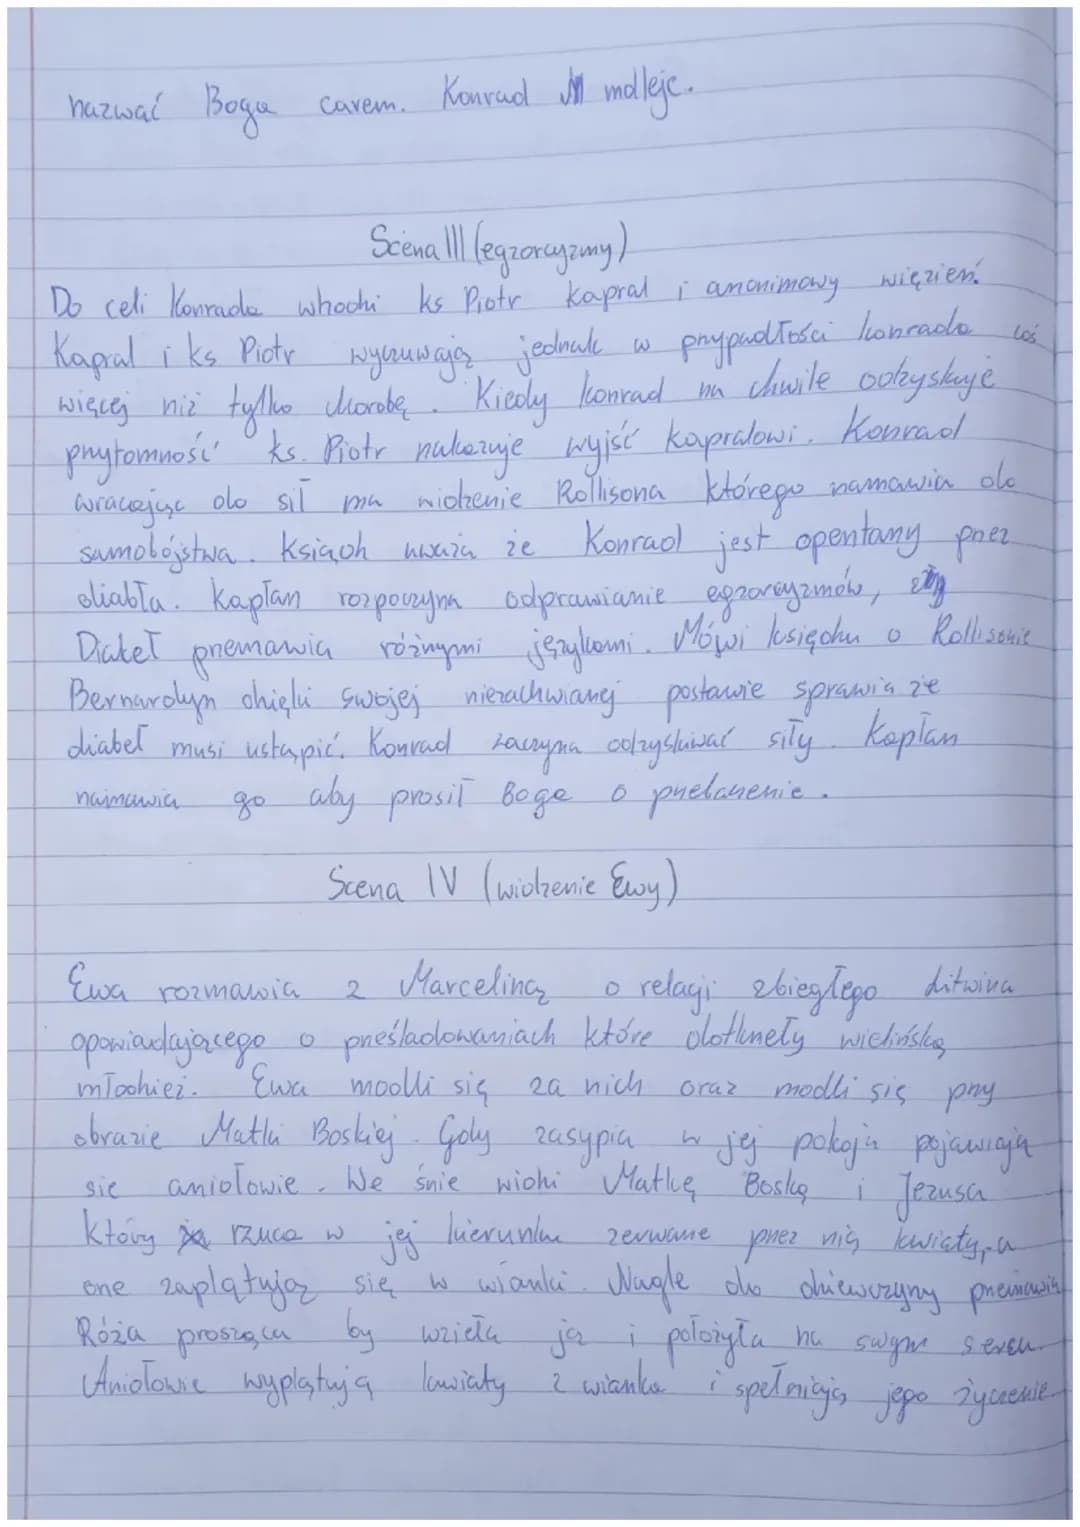 nazwać Boga carem. Konrad mdleje.
Scena III (egzorcyzmy)
Do celi Konrada whodzi ks Piotr kapral i anonimowy więzień.
Kapral i ks Piotr wyczuwają jednak w przypadłości konrada coś
więcej niż tylko chorobę. Kiedy konrad na chwile odzyskuje
przytomność ks. Piotr nakazuje wyjść kapralowi. Konrad
wracając do sił ma widzenie Rollisona którego namawia do
samobójstwa. Ksiądz uważa że Konrad jest opentany przez
diabła. kapłan rozpoczyna odprawianie egzorcyzmów,
Diabeł przemawia różnymi językami. Mówi księdzu o Rollisonie
Bernardyn dzięki swojej niezachwianej postawie sprawia że
diabeł musi ustąpić. Konrad zaczyna odzyskiwać siły. Kapłan
namawia go aby prosił Boga o przebaczenie.
Scena IV (widzenie Ewy)
Ewa rozmawia z Marceliną o relacji zbiegłego Litwina
opowiadającego o prześladowaniach które dotknęły wileńską
młodzież. Ewa modli się za nich oraz modli się przy
obrazie Matki Boskiej. Gdy zasypia w jej pokoju pojawiają
sie aniołowie. We śnie widzi Matkę Boską i Jezusa
Który rzuca w jej kierunku zerwane przez nią kwiaty, a
one zaplątują się w wianki. Nagle do dziewczyny przemawia
Róża prosząca by wzieła ją i położyła na swym sercu.
Aniołowie wyplątują kwiaty z wianka i spełniają jego życzenie